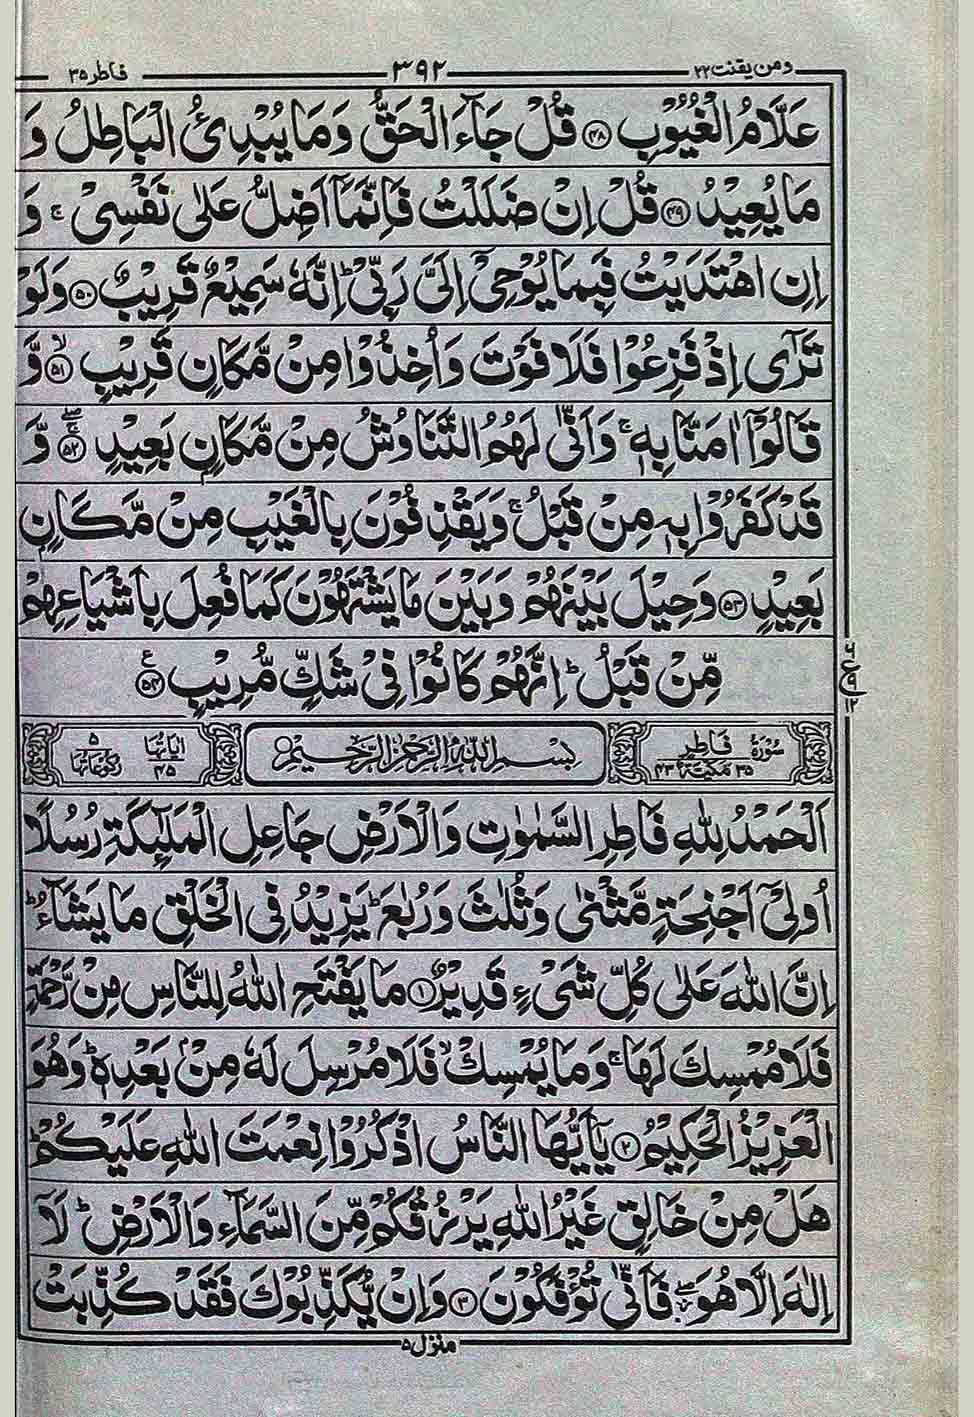 ومن یقنت ۲۲ ۳۹۲ فاطر ۳۵
عَلَّامُ الْغُيُوْبِ ۴۸ قُلْ جَآءَ الْحَقُّ وَمَا يُبْدِئُ الْبَاطِلُ وَ
مَا يُعِيْدُ ۴۹ قُلْ اِنْ ضَلَلْتُ فَاِنَّمَآ اَضِلُّ عَلٰى نَفْسِيْ ۚ وَ
اِنِ اهْتَدَيْتُ فَبِمَا يُوْحِيْٓ اِلَيَّ رَبِّيْ ؕ اِنَّهٗ سَمِيْعٌ قَرِيْبٌ ۵۰ وَلَوْ
تَرٰٓى اِذْ فَزِعُوْا فَلَا فَوْتَ وَاُخِذُوْا مِنْ مَّكَانٍ قَرِيْبٍ ۵۱ۙ وَّ
قَالُوْٓا اٰمَنَّا بِهٖ ۚ وَاَنّٰى لَهُمُ التَّنَاوُشُ مِنْ مَّكَانٍۭ بَعِيْدٍ ۵۲ وَّ
قَدْ كَفَرُوْا بِهٖ مِنْ قَبْلُ ۚ وَيَقْذِفُوْنَ بِالْغَيْبِ مِنْ مَّكَانٍۭ
بَعِيْدٍ ۵۳ وَحِيْلَ بَيْنَهُمْ وَبَيْنَ مَا يَشْتَهُوْنَ كَمَا فُعِلَ بِاَشْيَاعِهِمْ
مِّنْ قَبْلُ ؕ اِنَّهُمْ كَانُوْا فِيْ شَكٍّ مُّرِيْبٍ ۵۴ ع
۶ ع ۹ ۱۲
سُوْرَةُ فَاطِرٍ ۳۵ مَكِّيَّةٌ ۴۳ بِسْمِ اللّٰهِ الرَّحْمٰنِ الرَّحِيْمِ اٰيَاتُهَا ۴۵ ۵ رُكُوْعَاتُهَا
اَلْحَمْدُ لِلّٰهِ فَاطِرِ السَّمٰوٰتِ وَالْاَرْضِ جَاعِلِ الْمَلٰٓئِكَةِ رُسُلًا
اُولِيْٓ اَجْنِحَةٍ مَّثْنٰى وَثُلٰثَ وَرُبٰعَ ؕ يَزِيْدُ فِي الْخَلْقِ مَا يَشَآءُ ؕ
اِنَّ اللّٰهَ عَلٰى كُلِّ شَيْءٍ قَدِيْرٌ ۱ مَا يَفْتَحِ اللّٰهُ لِلنَّاسِ مِنْ رَّحْمَةٍ
فَلَا مُمْسِكَ لَهَا ۚ وَمَا يُمْسِكْ ۙ فَلَا مُرْسِلَ لَهٗ مِنْۢ بَعْدِهٖ ؕ وَهُوَ
الْعَزِيْزُ الْحَكِيْمُ ۲ يٰٓاَيُّهَا النَّاسُ اذْكُرُوْا نِعْمَتَ اللّٰهِ عَلَيْكُمْ ؕ
هَلْ مِنْ خَالِقٍ غَيْرُ اللّٰهِ يَرْزُقُكُمْ مِّنَ السَّمَآءِ وَالْاَرْضِ ؕ لَآ
اِلٰهَ اِلَّا هُوَ ۖ فَاَنّٰى تُؤْفَكُوْنَ ۳ وَاِنْ يُّكَذِّبُوْكَ فَقَدْ كُذِّبَتْ
منزل ۵